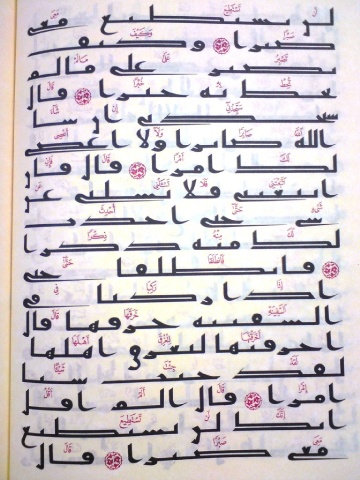 لن تستطيع معي
صبرا ۝ وكيف
تصبر على ما لم
تحط به خبرا ۝ قال
ستجدني إن شا
الله صابرا ولا أعصي
لك أمرا ۝ قال فإن
اتبعتني فلا تسلني عن
شيء حتى أحدث
لك منه ذكرا
۝ فانطلقا حتى
إذا ركبا في
السفينة خرقها قال
أخرقتها لتغرق أهلها
لقد جئت شيئا
إمرا ۝ قال ألم أقل
إنك لن تستطيع
معي صبرا ۝ قال